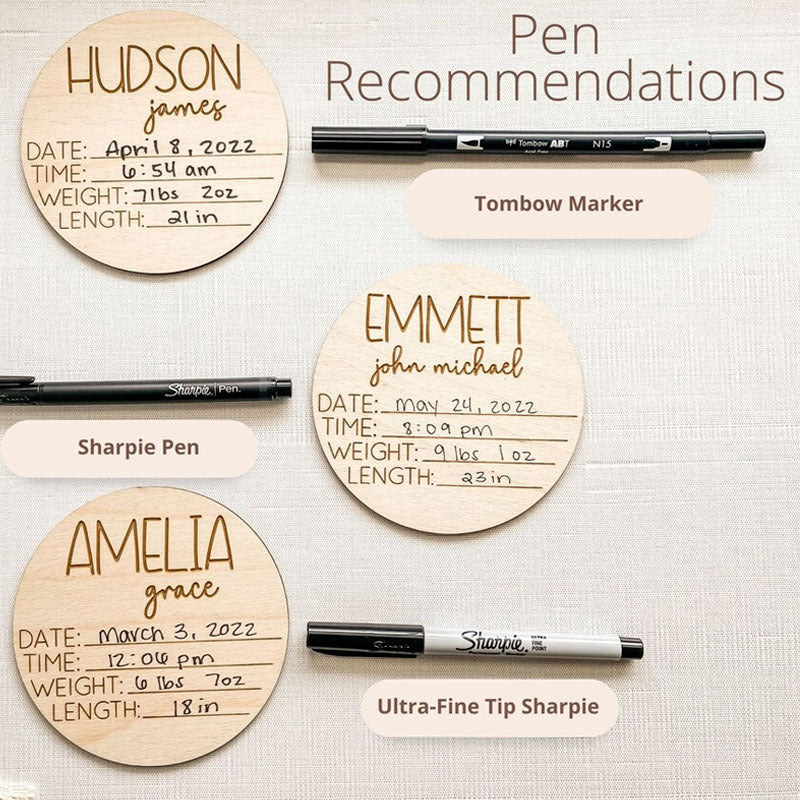 Pen
Recommendations
HUDSON
james
DATE: April 8, 2022
TIME: 6:54 am
WEIGHT: 7lbs 2oz
LENGTH: 21 in
Tombow ABT N15
Tombow Marker
EMMETT
john michael
DATE: May 24, 2022
TIME: 8:09 pm
WEIGHT: 9 lbs 1 oz
LENGTH: 23 in
Sharpie. Pen.
Sharpie Pen
AMELIA
grace
DATE: March 3, 2022
TIME: 12:06 pm
WEIGHT: 6 lbs 7oz
LENGTH: 18 in
Sharpie. ULTRA FINE POINT
Ultra-Fine Tip Sharpie